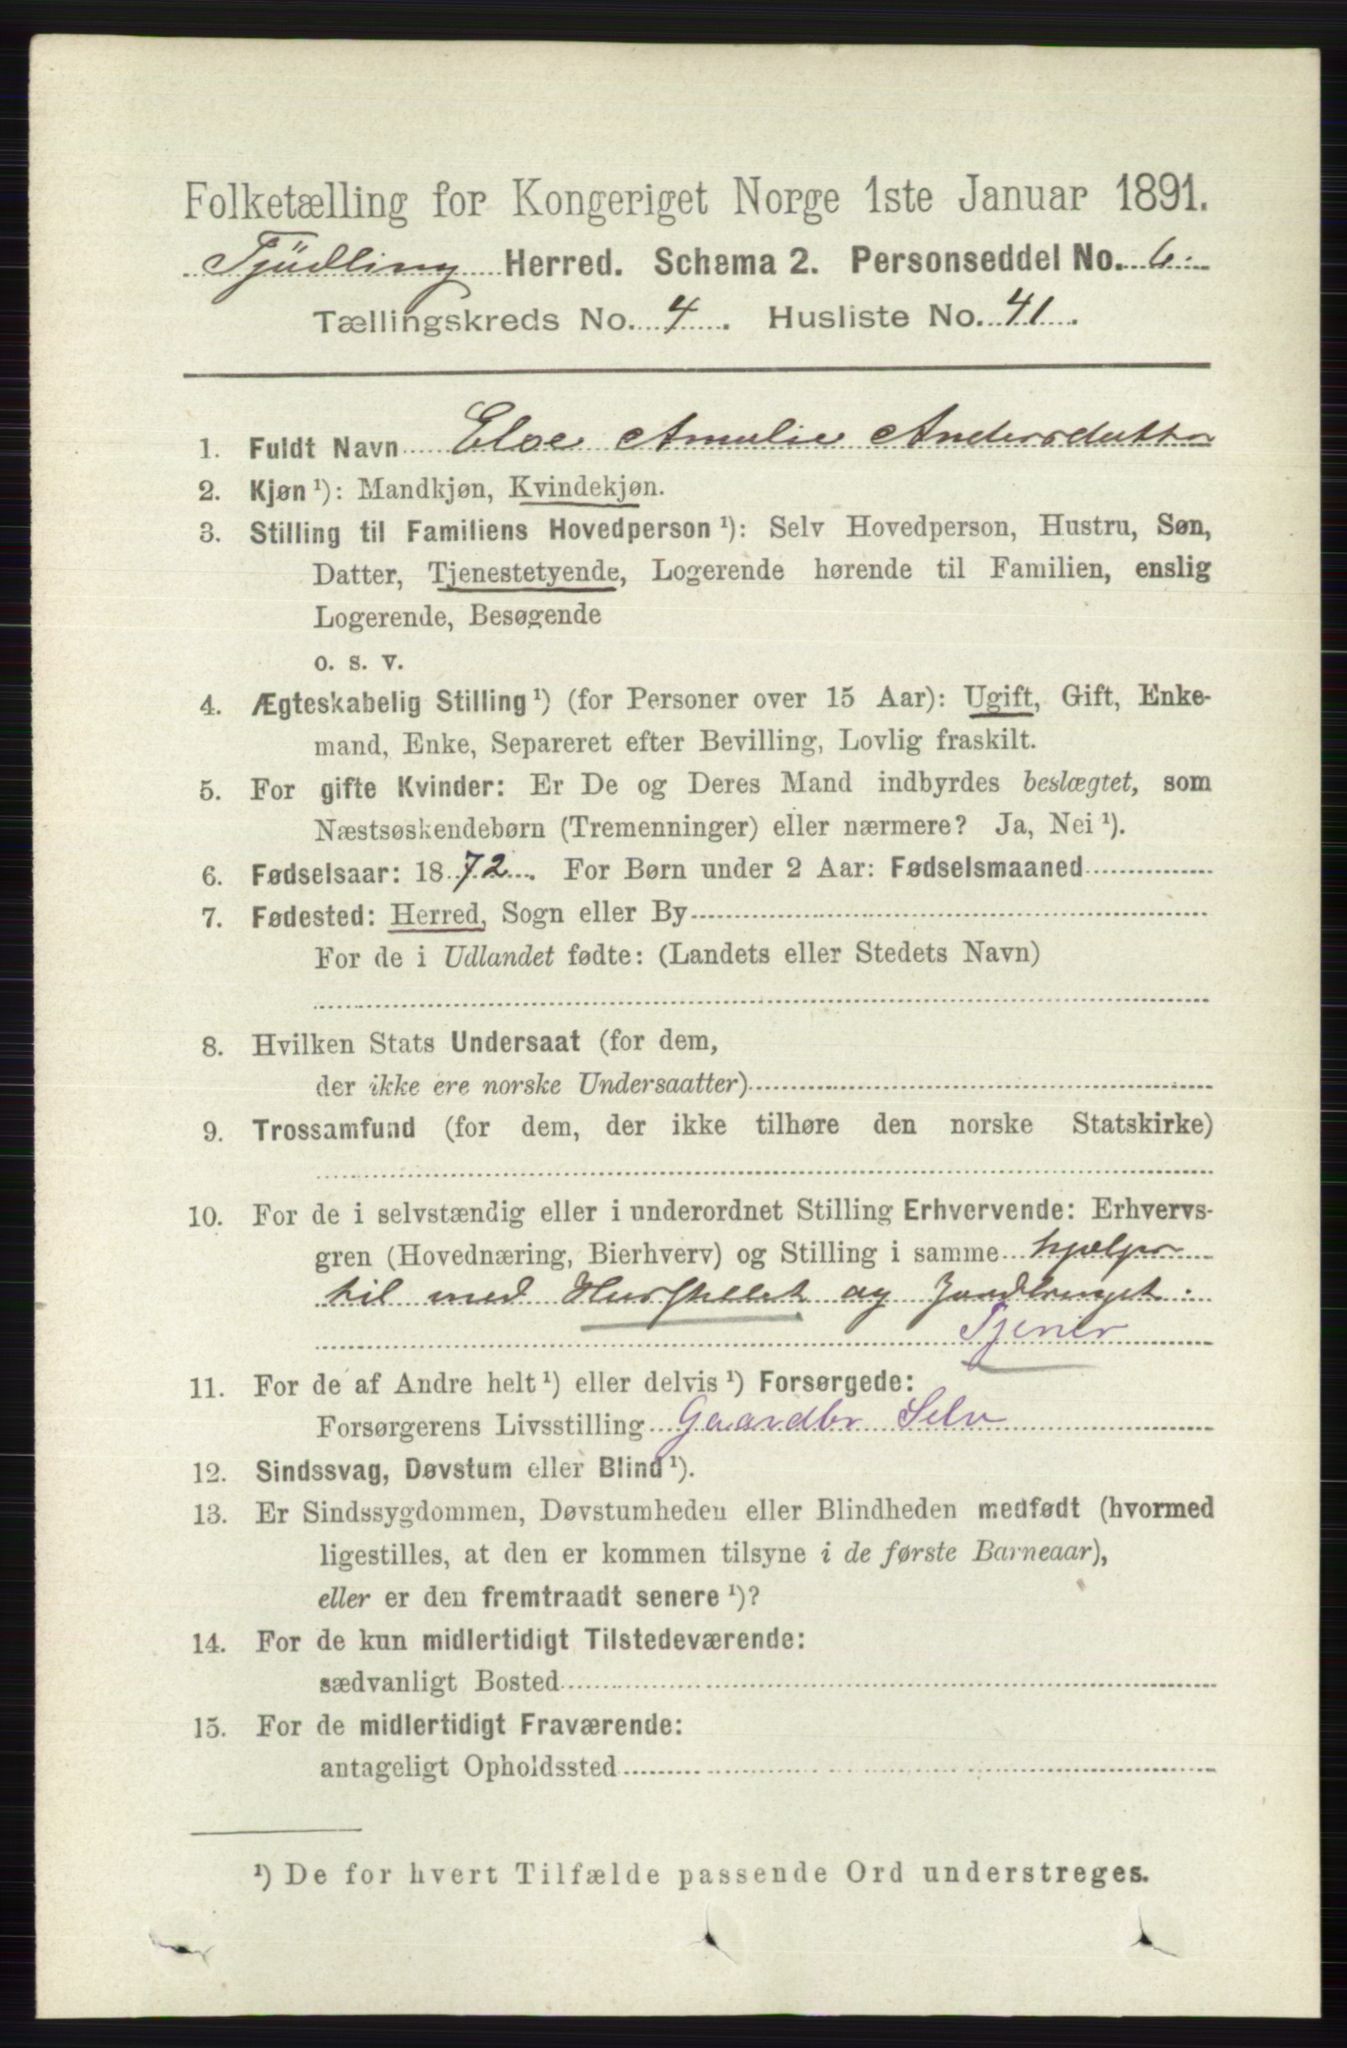 Folketælling for Kongeriget Norge 1ste Januar 1891.
Tjüdling Herred. Schema 2. Personseddel No. 6.
Tællingskreds No. 4. Husliste No. 41.
1. Fuldt Navn Else Amalie Andersdatter
2. Kjøn ¹): Mandkjøn, Kvindekjøn.
3. Stilling til Familiens Hovedperson ¹): Selv Hovedperson, Hustru, Søn,
Datter, Tjenestetyende, Logerende hørende til Familien, enslig
Logerende, Besøgende
o. s. v.
4. Ægteskabelig Stilling ¹) (for Personer over 15 Aar): Ugift, Gift, Enke-
mand, Enke, Separeret efter Bevilling, Lovlig fraskilt.
5. For gifte Kvinder: Er De og Deres Mand indbyrdes beslægtet, som
Næstsøskendebørn (Tremenninger) eller nærmere? Ja, Nei ¹).
6. Fødselsaar: 1872. For Børn under 2 Aar: Fødselsmaaned
7. Fødested: Herred, Sogn eller By
For de i Udlandet fødte: (Landets eller Stedets Navn)
8. Hvilken Stats Undersaat (for dem,
der ikke ere norske Undersaatter)
9. Trossamfund (for dem, der ikke tilhøre den norske Statskirke)
10. For de i selvstændig eller i underordnet Stilling Erhvervende: Erhvervs-
gren (Hovednæring, Bierhverv) og Stilling i samme hjælper
til med Husstellet og Jordbruget.
Tjener
11. For de af Andre helt ¹) eller delvis ¹) Forsørgede:
Forsørgerens Livsstilling Gaardbr Selv
12. Sindssvag, Døvstum eller Blind ¹).
13. Er Sindssygdommen, Døvstumheden eller Blindheden medfødt (hvormed
ligestilles, at den er kommen tilsyne i de første Barneaar),
eller er den fremtraadt senere ¹)?
14. For de kun midlertidigt Tilstedeværende:
sædvanligt Bosted
15. For de midlertidigt Fraværende:
antageligt Opholdssted
¹) De for hvert Tilfælde passende Ord understreges.